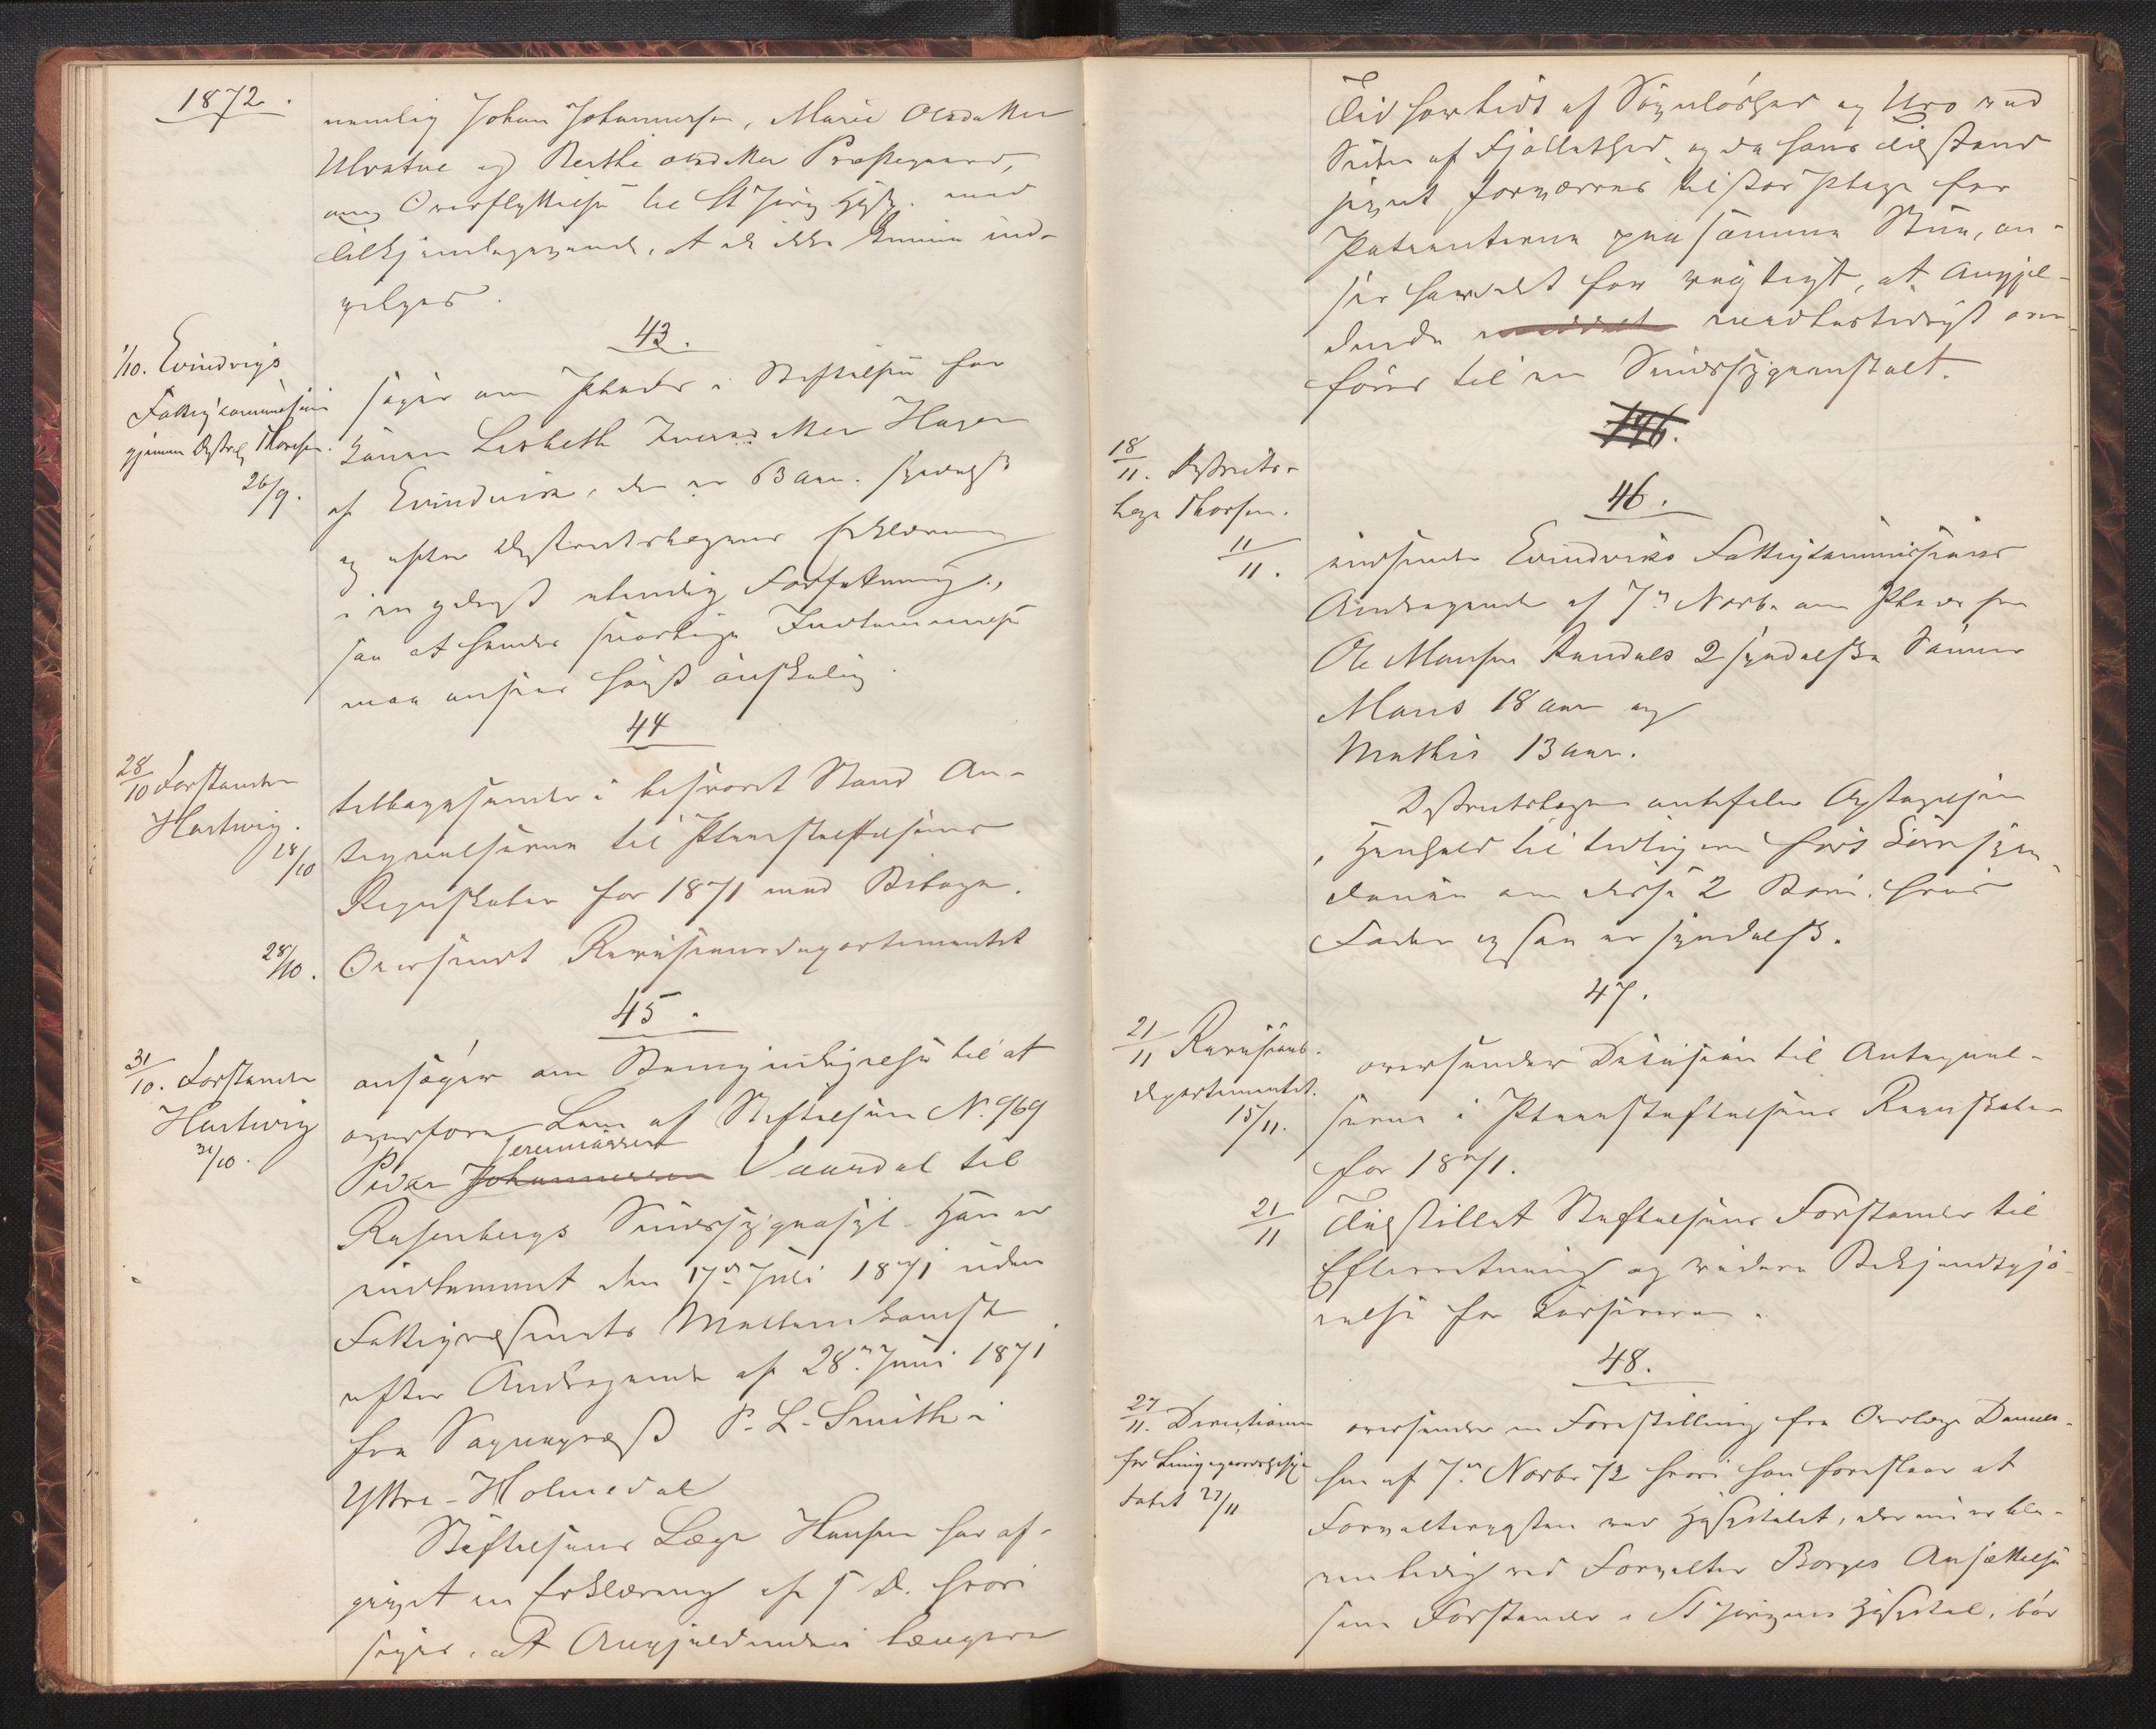 1872.
nemlig Johan Johannessen, Marie Olsdatter
Ulvatne og Berthe Olsdatter Prestegaard,
om Overflyttelse til St Jørg. Hosp. med
Tilkjendegivende, at de ikke kunne ind-
vilges.
43.
1/10. Evindvigs
Fattigcommission
gjennem Distrlg Thoresen.
26/9.
søger om Plads i Stiftelsen for
Konen Lisbeth Iversdatter Hagen
af Evindvik, der er 63 Aar. spedalsk
og efter Distriktslægens Erklæring
i en yderst elendig Forfatning,
saa at hendes snarlige Indkommelse
maa ansees høist ønskelig.
44
28/10 Forstander
Hartwig.
28/10
tilbagesender i besvaret Stand An-
tegnelserne til Pleiestiftelsens
Regnskaber for 1871 med Bilage.
28/10. Oversendt Revisionsdepartementet
45.
31/10. Forstander
Hartwig
31/10.
ansøger om Bemyndigelse til at
overføre Lem af Stiftelsen No. 969
Jeremiassen
Peder Johannessen Vaardal til
Rosenbergs Sindssygeasyl. Han er
indkommet den 17de Juli 1871 uden
Fattigvæsenets Mellemkomst
efter Andragende af 28n Juni 1871
fra Sognepræst P. L. Smith i
Yttre-Holmedal
Stiftelsens Læge Hansen har af-
givet en Erklæring af s. D. hvori
siges, at Angjældende i længere
Tid har lidt af Søvnløshed og Uro ved
Siden af Fjollethed, og da hans Tilstand
jevnt forværres til stor Plage for
Patienterne paa samme Stue, an-
sees det for rigtigt, at Angjæl-
dende snarest ufortøvet over
føres til en Sindssygeanstalt.
146.
46.
18/11. Distrikts-
læge Thorsen.
11/11.
indsender Evindviks Fattigkommissions
Andragende af 7n Novbr om Plads for
Ole Monsen Randals 2 spedalske Sønner
Mons 18 Aar og
Mathis 13 Aar.
Distriktslægen anbefaler Optagelsen
i Henhold til tidligere ført Korrespon-
dance om disse 2 Børn. hvis
Fader ogsaa er spedalsk.
47.
21/11 Revisions-
departementet.
15/11.
oversender Decision til Antegnel-
serne i Pleiestiftelsens Regnskaber
for 1871.
21/11
Tilstillet Stiftelsens Forstander til
Efterretning og videre Bekjendtgjø-
relse for Kasserer.
48.
27/11. Directionen
for Lungegaardshospi-
talet 27/11
oversender en Forestilling fra Overlæge Daniel-
sen af 7n Novbr 72 hvori han foreslaar at
Forvalterposten ved Hospitalet, der nu er ble-
ven ledig ved Forvalter Borges Ansættelse
som Forstander i St Jørgens Hospital, bør